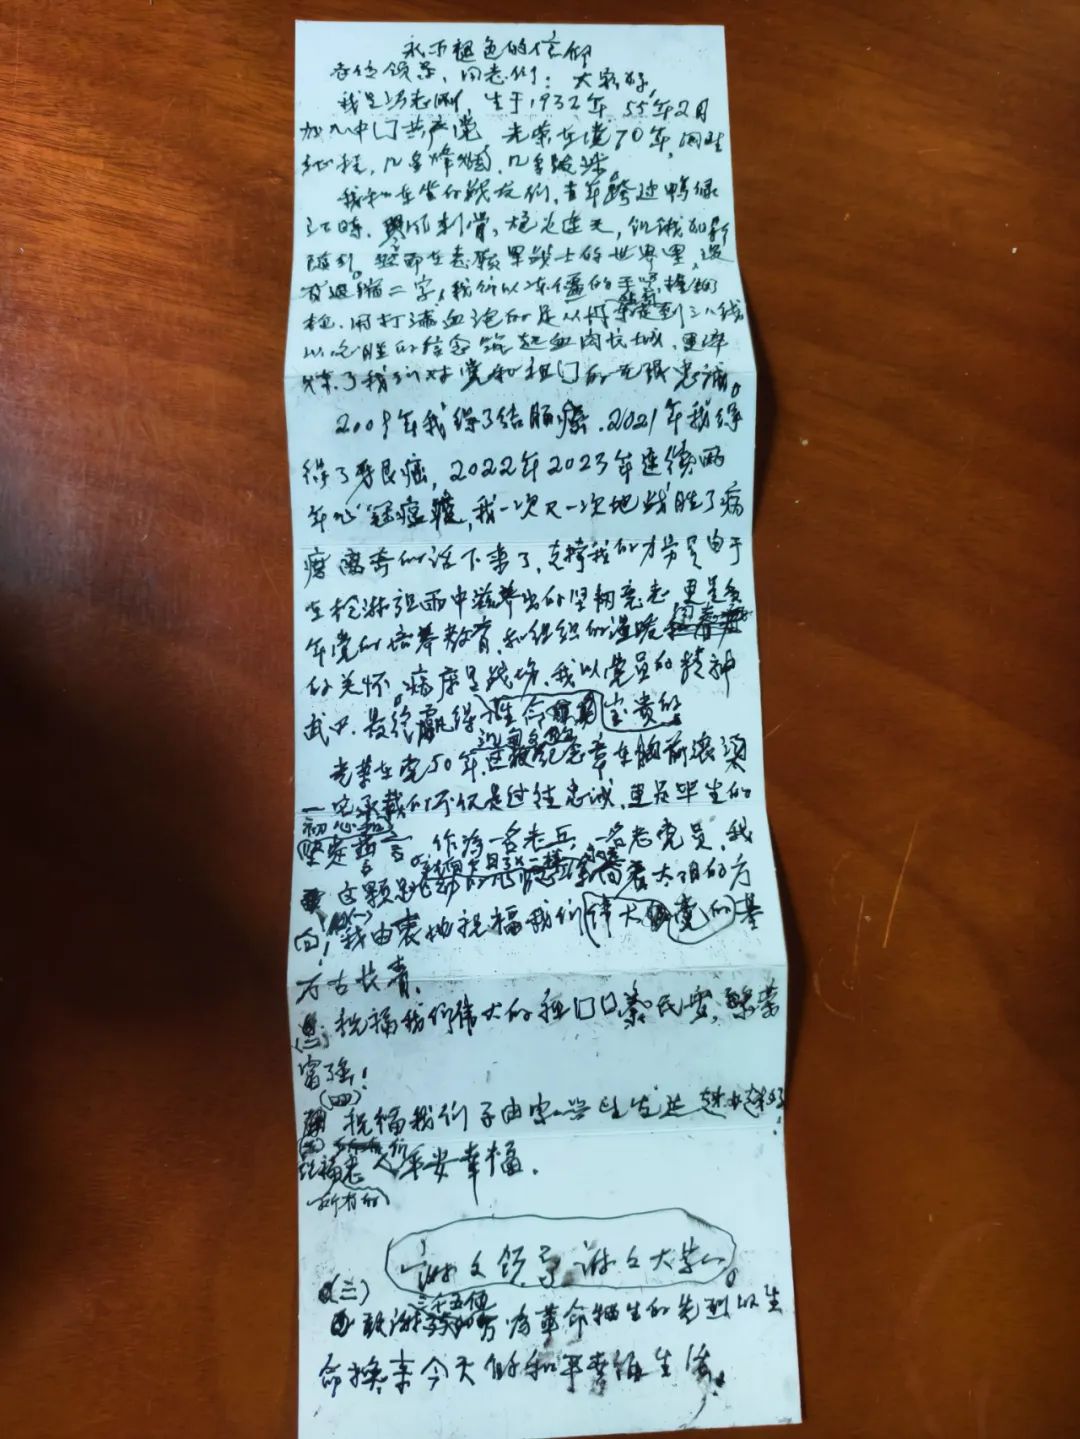 永不褪色的信仰
各位领导，同志们：大家好，
我是冯志，生于1932年，55年2月
加入中门共产党 光荣在党70年，回望
征程，几多烽烟，几多跋涉。
我和在坐的战友们，当年跨过鸭绿
江時，寒风刺骨，炮火连天，饥饿如影
随形。然而在志愿军战士的世界里，没
有退缩二字，我们以冻僵的手紧握钢
枪，用打满血泡的足从丹东走到三八线
以必胜的信念筑起血肉长城，更淬
炼了我们对党和祖门的无限忠诚。
2009年我得了结肠癌，2021年我得
得了牙艮癌，2022年2023年连续两
年心冠，我一次又一次地战胜了病
魔离奇的活下来了，支撑我的力量是由于
在枪淋弹雨中滋养出的坚韧意志，更是多
年党的培养教育，和组织的温暖
的关怀。病房是战场，我以党员的精神
武巾，最终赢得生命宝贵的
光荣在党50年，纪念章在胸前滚烫
一它承载的不仅是过往忠诚，更是毕生的
初心和
坚定。作为一名老兵，一名老党员，我
就向葵花一样永远
这颗跳动的心着太阳的方
向！(一)我由衷地祝福我们伟大的党的基
万古长青。
(二)祝福我们伟大的祖门口泰民安，繁荣
富强！
(四)
祝福我们子由家生活越来越好！
(五)
祝福老人们平安幸福。
所有的
谢又领导 谢又大家。
(三)
三千五佰
敢谢万为革命牺牲的先烈以生
命换来今天的和平幸福生活。